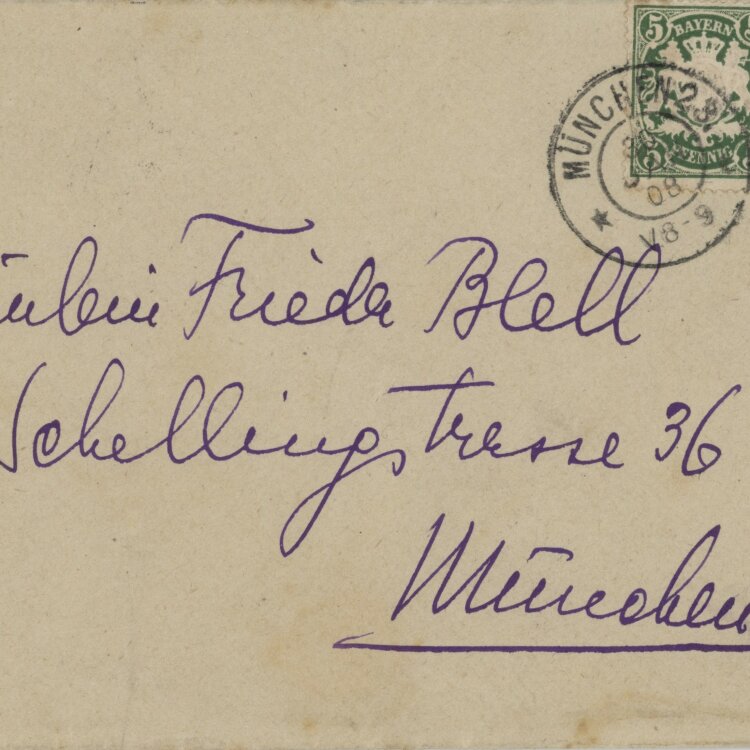 5 BAYERN 5
PFENNIG
MÜNCHEN 23
08
V8-9
äulein Frieda Blell
Schellingstrasse 36
München